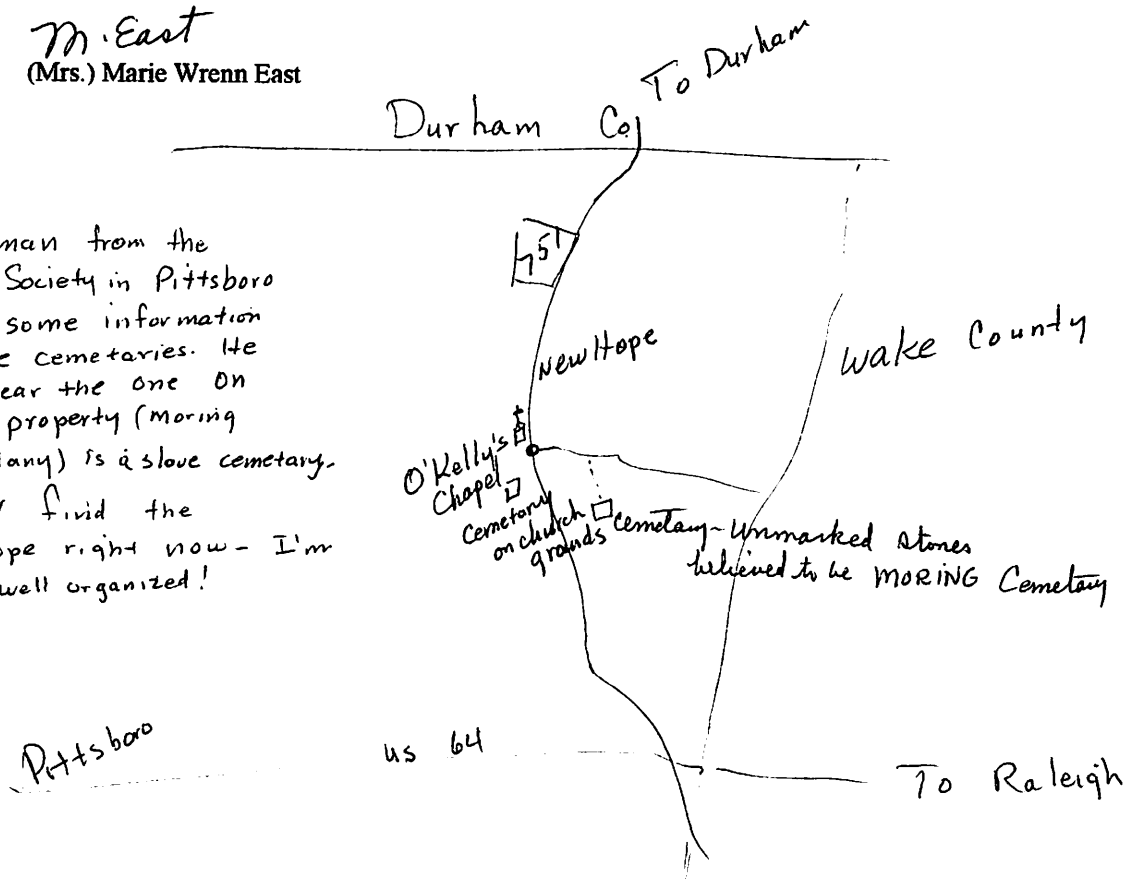 M. East
(Mrs.) Marie Wrenn East
To Durham
Durham Co.
751
man from the
Society in Pittsboro
some information
e cemetaries. He
ear the one on
property (Moring
any) is a slave cemetary.
find the
ope right now - I'm
well organized!
New Hope
Wake County
O'Kelly's
Chapel
Cemetary
on church
grounds
Cemetary - Unmarked stones
believed to be MORING Cemetary
Pittsboro
US 64
To Raleigh